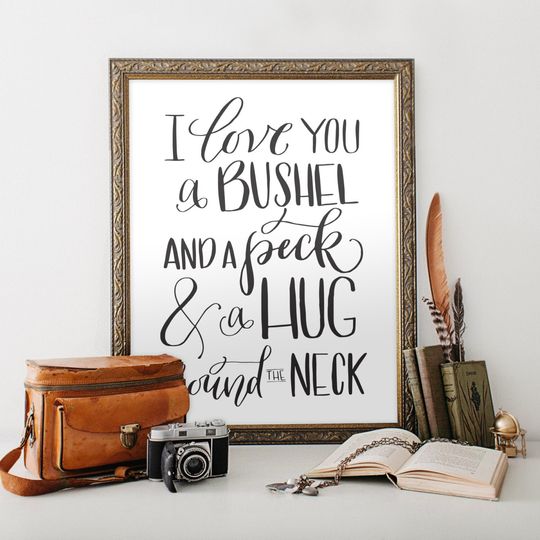 I love YOU
a BUSHEL
AND A peck
& a HUG
round THE NECK